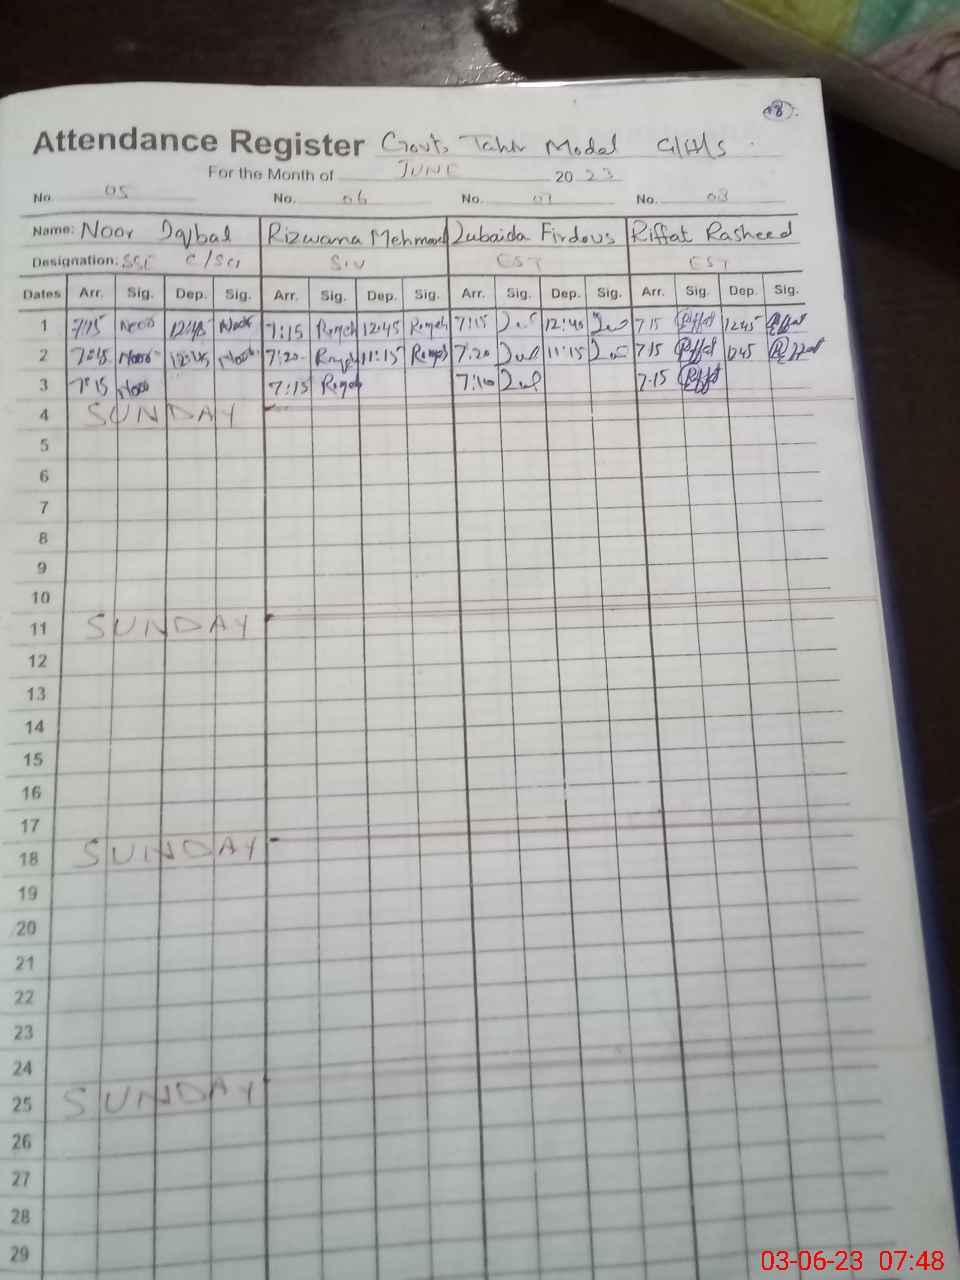 18
Attendance Register Govt. Tahir Model G/H/S
For the Month of JUNE 2023
No. 05 No. 06 No. 07 No. 08
Name: Noor Iqbal Rizwana Mehmood Zubaida Firdous Riffat Rasheed
Designation: SSE C/Sci EST EST
Dates Arr. Sig. Dep. Sig. Arr. Sig. Dep. Sig. Arr. Sig. Dep. Sig. Arr. Sig. Dep. Sig.
1 7:15 Noor 12:45 Noor 7:15 12:45 7:15 12:40 7:15 Riffat 12:45 Riffat
2 7:15 Noor 12:45 Noor 7:20 11:15 7:20 11:15 7:15 Riffat Riffat
3 7:15 Noor 7:15 7:10 7:15 Riffat
4 SUNDAY
5
6
7
8
9
10
11 SUNDAY
12
13
14
15
16
17
18 SUNDAY
19
20
21
22
23
24
25 SUNDAY
26
27
28
29
03-06-23 07:48